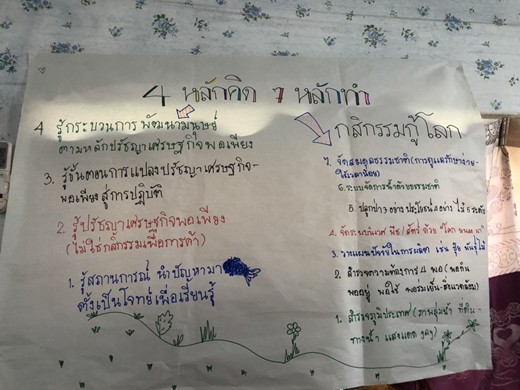 4 หลักคิด 7 หลักทำ
4 รู้กระบวนการ พัฒนามนุษย์
ตามหลักปรัชญาเศรษฐกิจพอเพียง
3. รู้ขั้นตอนการแปลงปรัชญาเศรษฐกิจ-
พอเพียง สู่การปฏิบัติ
2. รู้ปรัชญาเศรษฐกิจพอเพียง
(ไม่ใช่กสิกรรมเพื่อการค้า)
1. รู้สถานการณ์ นำปัญหามา
ตั้งเป็นโจทย์เพื่อเรียนรู้
กสิกรรมกู้โลก
7. จัดสมดุลธรรมชาติ (การดูแลรักษาง่าย-
ใช้เวลาน้อย)
6. ระบบจัดการน้ำด้วยธรรมชาติ
5. ปลูกป่า 3 อย่าง ประโยชน์ 4 อย่าง ไว้ 5 ระดับ
4. จัดระบบนิเวศ พืช/สัตว์ ด้วย "โคก หนอง นา"
3. วางแผนปัจจัยในการผลิต เช่น ปุ๋ย พันธุ์ไม้
2. สำรวจความต้องการ 4 พอ (พอกิน
พออยู่ พอใช้ พอร่มเย็น-สิ่งแวดล้อม)
1. สำรวจภูมิประเทศ (ภาพลุ่มน้ำ ที่ดิน-
ทางน้ำ แสงแดด ฤดู)